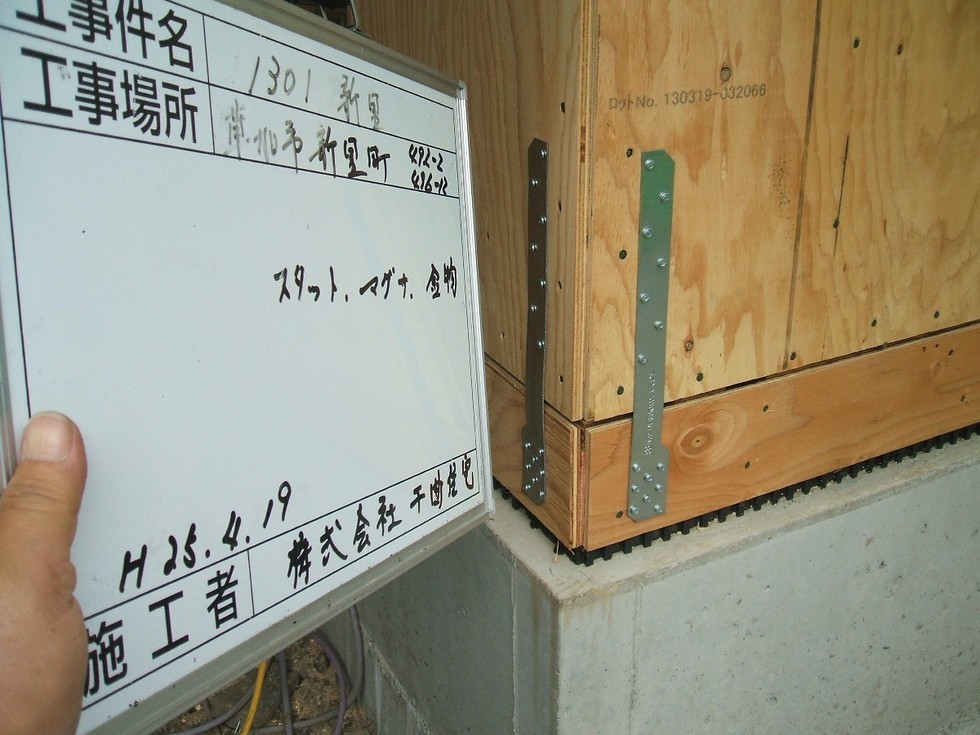 工事件名 1301 新里
工事場所 市新里町 492-2
496-12
スタット、マグナ、金物
H25.4.19
施工者 株式会社 千曲住宅
ロットNo. 130319-032066